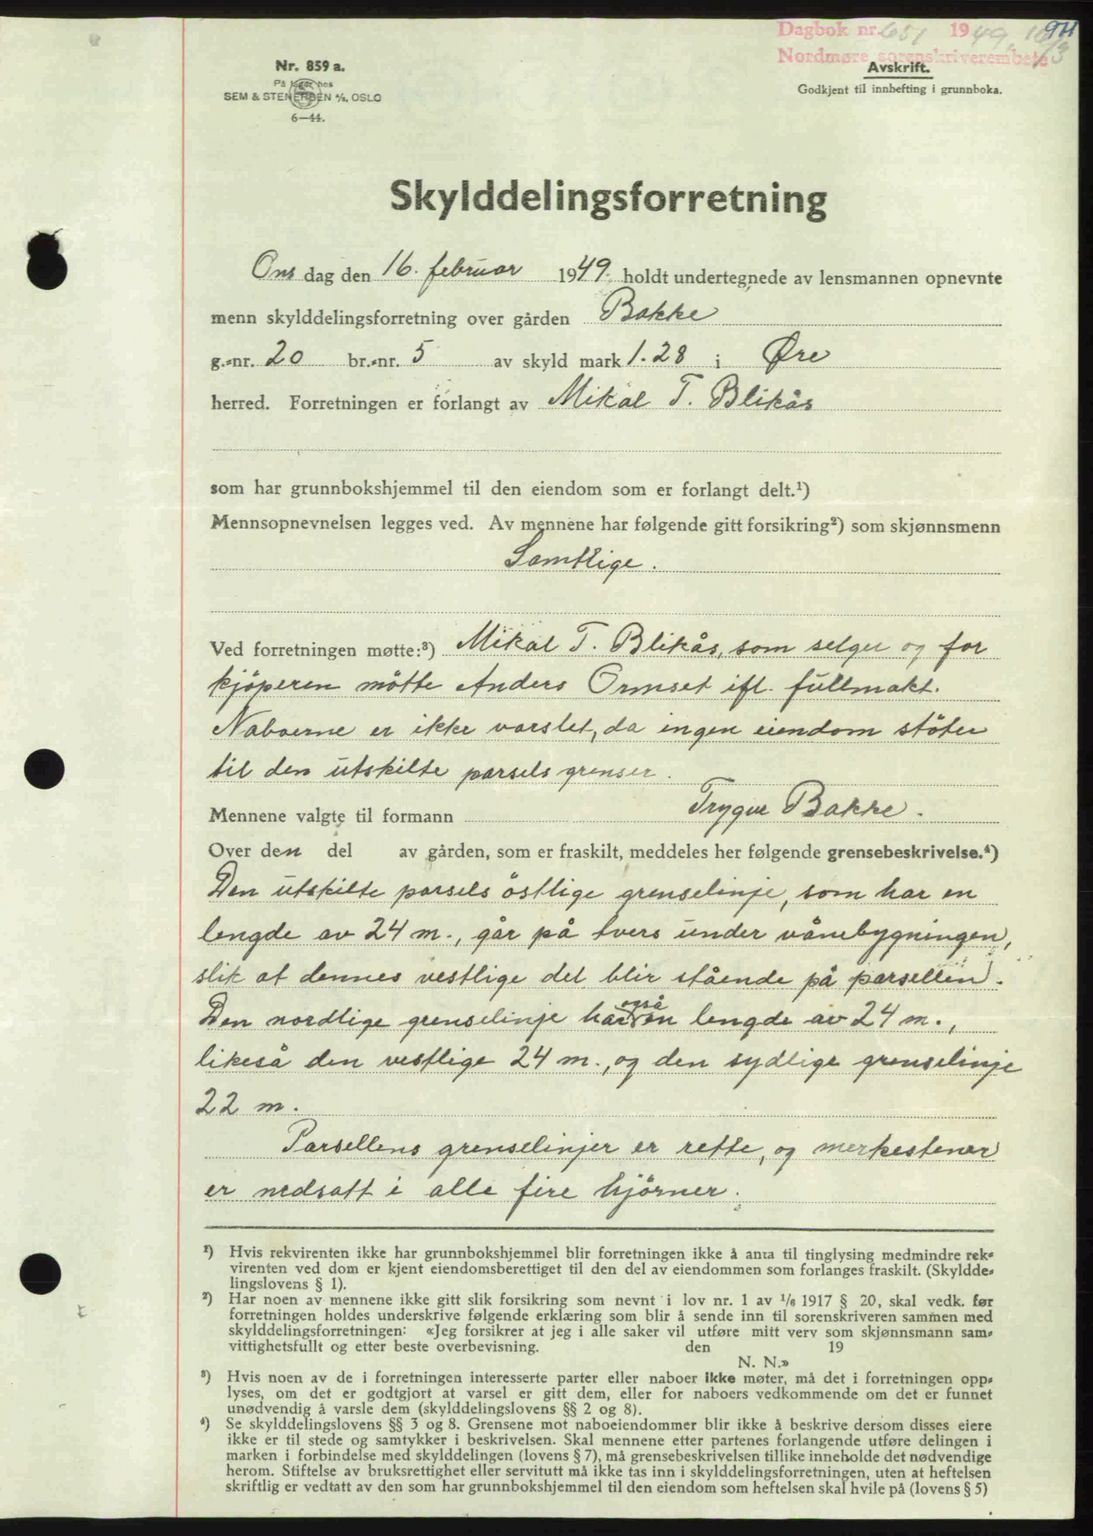 Dagbok nr. 651 1949, 16/3
Nordmøre sorenskriverembete
Nr. 859 a.
På lager hos
SEM & STENERSEN A/S, OSLO
6—44.
Avskrift.
Godkjent til innhefting i grunnboka.
Skylddelingsforretning
Ons dag den 16. februar 1949. holdt undertegnede av lensmannen opnevnte
menn skylddelingsforretning over gården Bakke
g.-nr. 20 br.-nr. 5 av skyld mark 1.28 i Øre
herred. Forretningen er forlangt av Mikal T. Blikås
som har grunnbokshjemmel til den eiendom som er forlangt delt.¹)
Mennsopnevnelsen legges ved. Av mennene har følgende gitt forsikring²) som skjønnsmenn
Samtlige.
Ved forretningen møtte:³) Mikal T. Blikås, som selger og for
kjöperen mötte Anders Ormset ifl. fullmakt.
Naboerne er ikke varslet, da ingen eiendom stöter
til den utskilte parsels grenser.
Mennene valgte til formann Trygve Bakke.
Over den del av gården, som er fraskilt, meddeles her følgende grensebeskrivelse.⁴)
Den utskilte parsels östlige grenselinje, som har en
lengde av 24 m., går på tvers under vånebygningen,
slik at dennes vestlige del blir stående på parsellen.
Den nordlige grenselinje har også en lengde av 24 m.,
likeså den vestlige 24 m., og den sydlige grenselinje
22 m.
Parsellens grenselinjer er rette, og merkestener
er nedsatt i alle fire hjörner.
¹) Hvis rekvirenten ikke har grunnbokshjemmel blir forretningen ikke å anta til tinglysing medmindre rek-
virenten ved dom er kjent eiendomsberettiget til den del av eiendommen som forlanges fraskilt. (Skyldde-
lingslovens § 1).
²) Har noen av mennene ikke gitt slik forsikring som nevnt i lov nr. 1 av 1/6 1917 § 20, skal vedk. før
forretningen holdes underskrive følgende erklæring som blir å sende inn til sorenskriveren sammen med
skylddelingsforretningen: «Jeg forsikrer at jeg i alle saker vil utføre mitt verv som skjønnsmann sam-
vittighetsfullt og etter beste overbevisning. den 19
N. N.»
³) Hvis noen av de i forretningen interesserte parter eller naboer ikke møter, må det i forretningen opp-
lyses, om det er godtgjort at varsel er gitt dem, eller for naboers vedkommende om det er funnet
unødvendig å varsle dem (skylddelingslovens §§ 2 og 8).
⁴) Se skylddelingslovens §§ 3 og 8. Grensene mot naboeiendommer blir ikke å beskrive dersom disses eiere
ikke er til stede og samtykker i beskrivelsen. Skal mennene etter partenes forlangende utføre delingen i
marken i forbindelse med skylddelingen (lovens § 7), må grensebeskrivelsen tillike inneholde det nødvendige
herom. Stiftelse av bruksrettighet eller servitutt må ikke tas inn i skylddelingsforretningen, uten at heftelsen
skriftlig er vedtatt av den som har grunnbokshjemmel til den eiendom som heftelsen skal hvile på (lovens § 5)